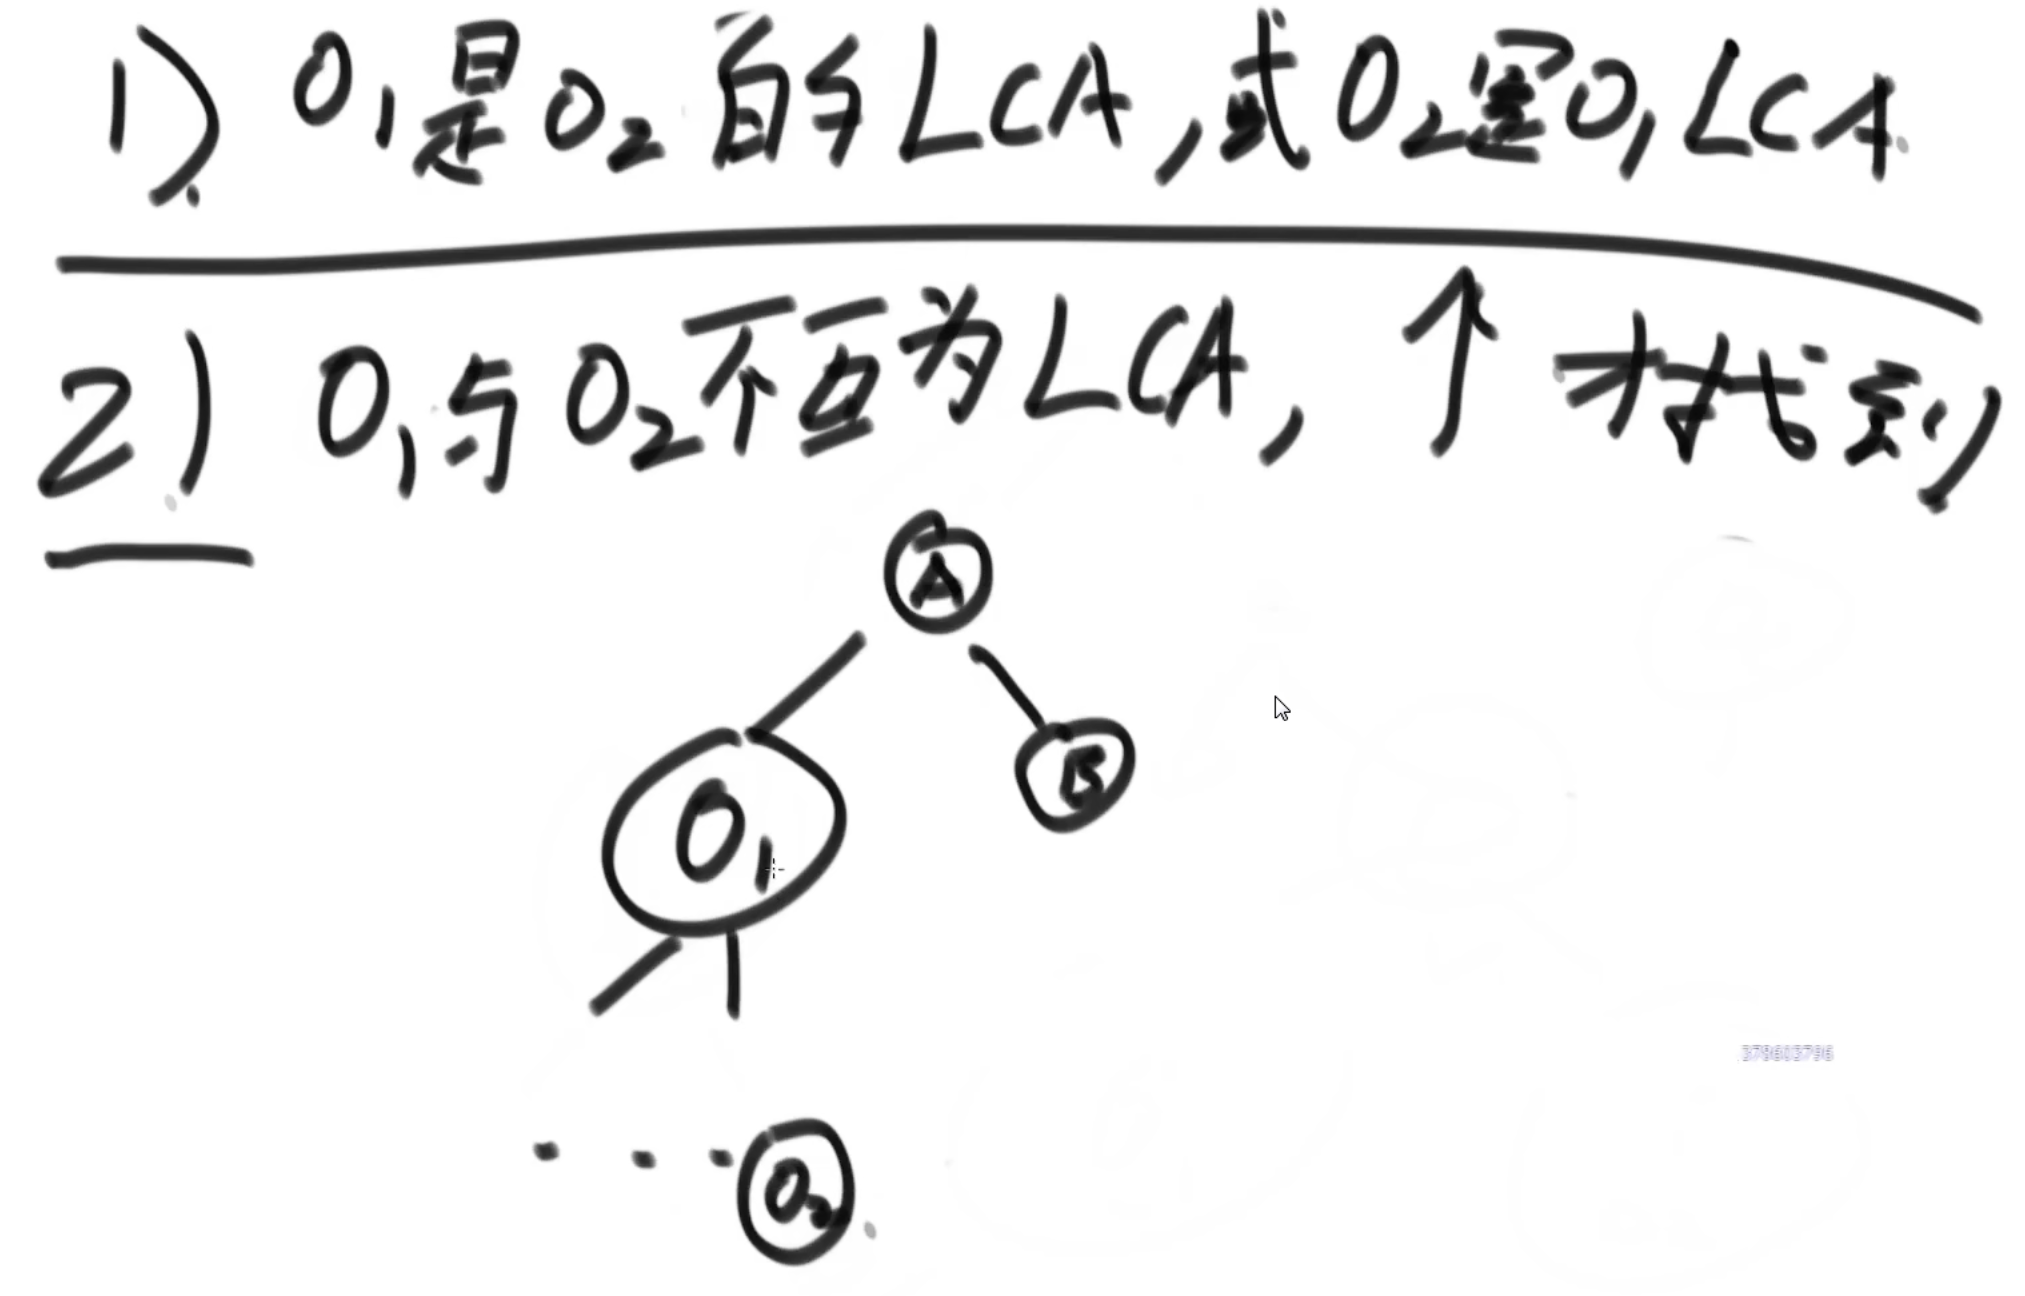 1) O1是O2的LCA,或O2是O1LCA
2) O1与O2不互为LCA, ↑ 才找到
A
O1
B
O2
379603796